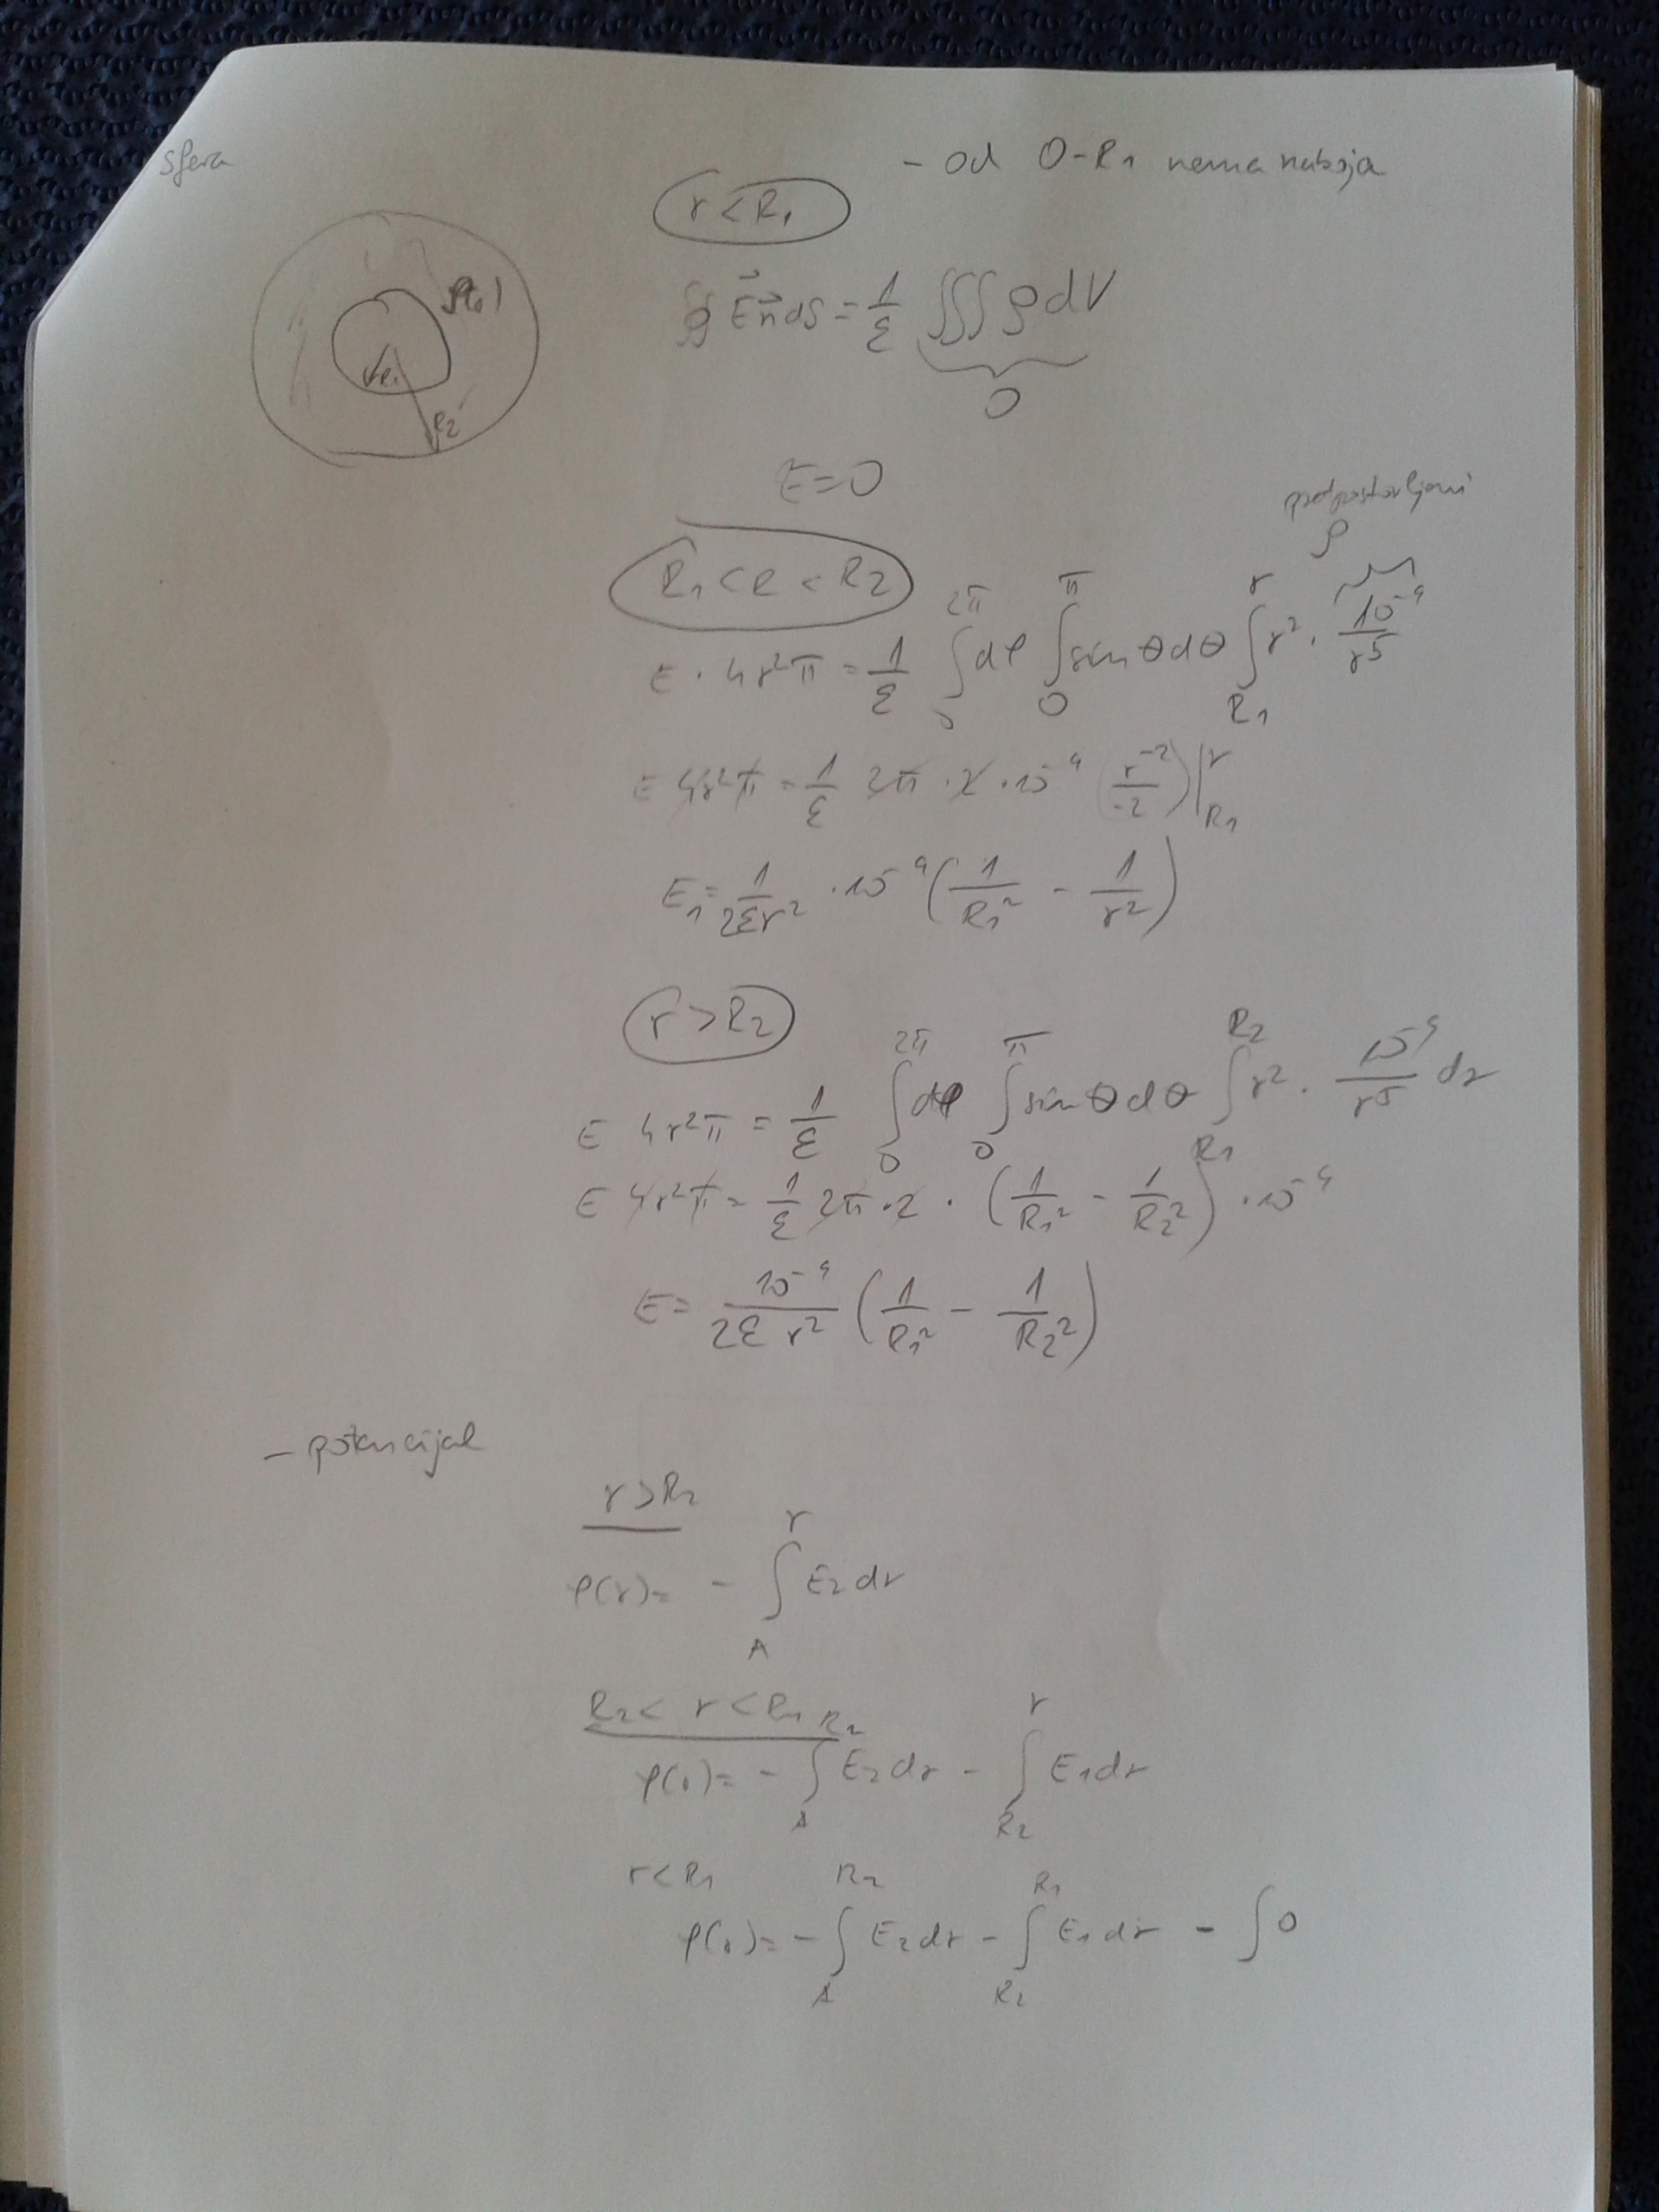 sfera
- od 0-R₁ nema naboja
r < R₁
ρ(r)
R₁
R₂
∯ E⃗ n⃗ dS = 1/ε ∭ ρ dV
0
E = 0
pretpostavljeni
ρ
R₁ < R < R₂
E · 4r²π = 1/ε ∫₀^2π dφ ∫₀^π sin θ dθ ∫_R₁^r r² · 10⁻⁹/r⁵
E 4r²π = 1/ε 2π · 2 · 10⁻⁹ (r⁻²/-2) |_R₁^r
E₁ = 1/2εr² · 10⁻⁹ (1/R₁² - 1/r²)
r > R₂
E 4r²π = 1/ε ∫₀^2π dφ ∫₀^π sin θ dθ ∫_R₁^R₂ r² · 10⁻⁹/r⁵ dr
E 4r²π = 1/ε 2π · 2 · (1/R₁² - 1/R₂²) · 10⁻⁹
E = 10⁻⁹/2ε r² (1/R₁² - 1/R₂²)
- potencijal
r > R₂
φ(r) = - ∫_A^r E₂ dr
R₂ < r < R₁
φ(r) = - ∫_A^R₂ E₂ dr - ∫_R₂^r E₁ dr
r < R₁
φ(r) = - ∫_A^R₂ E₂ dr - ∫_R₂^R₁ E₁ dr - ∫ 0